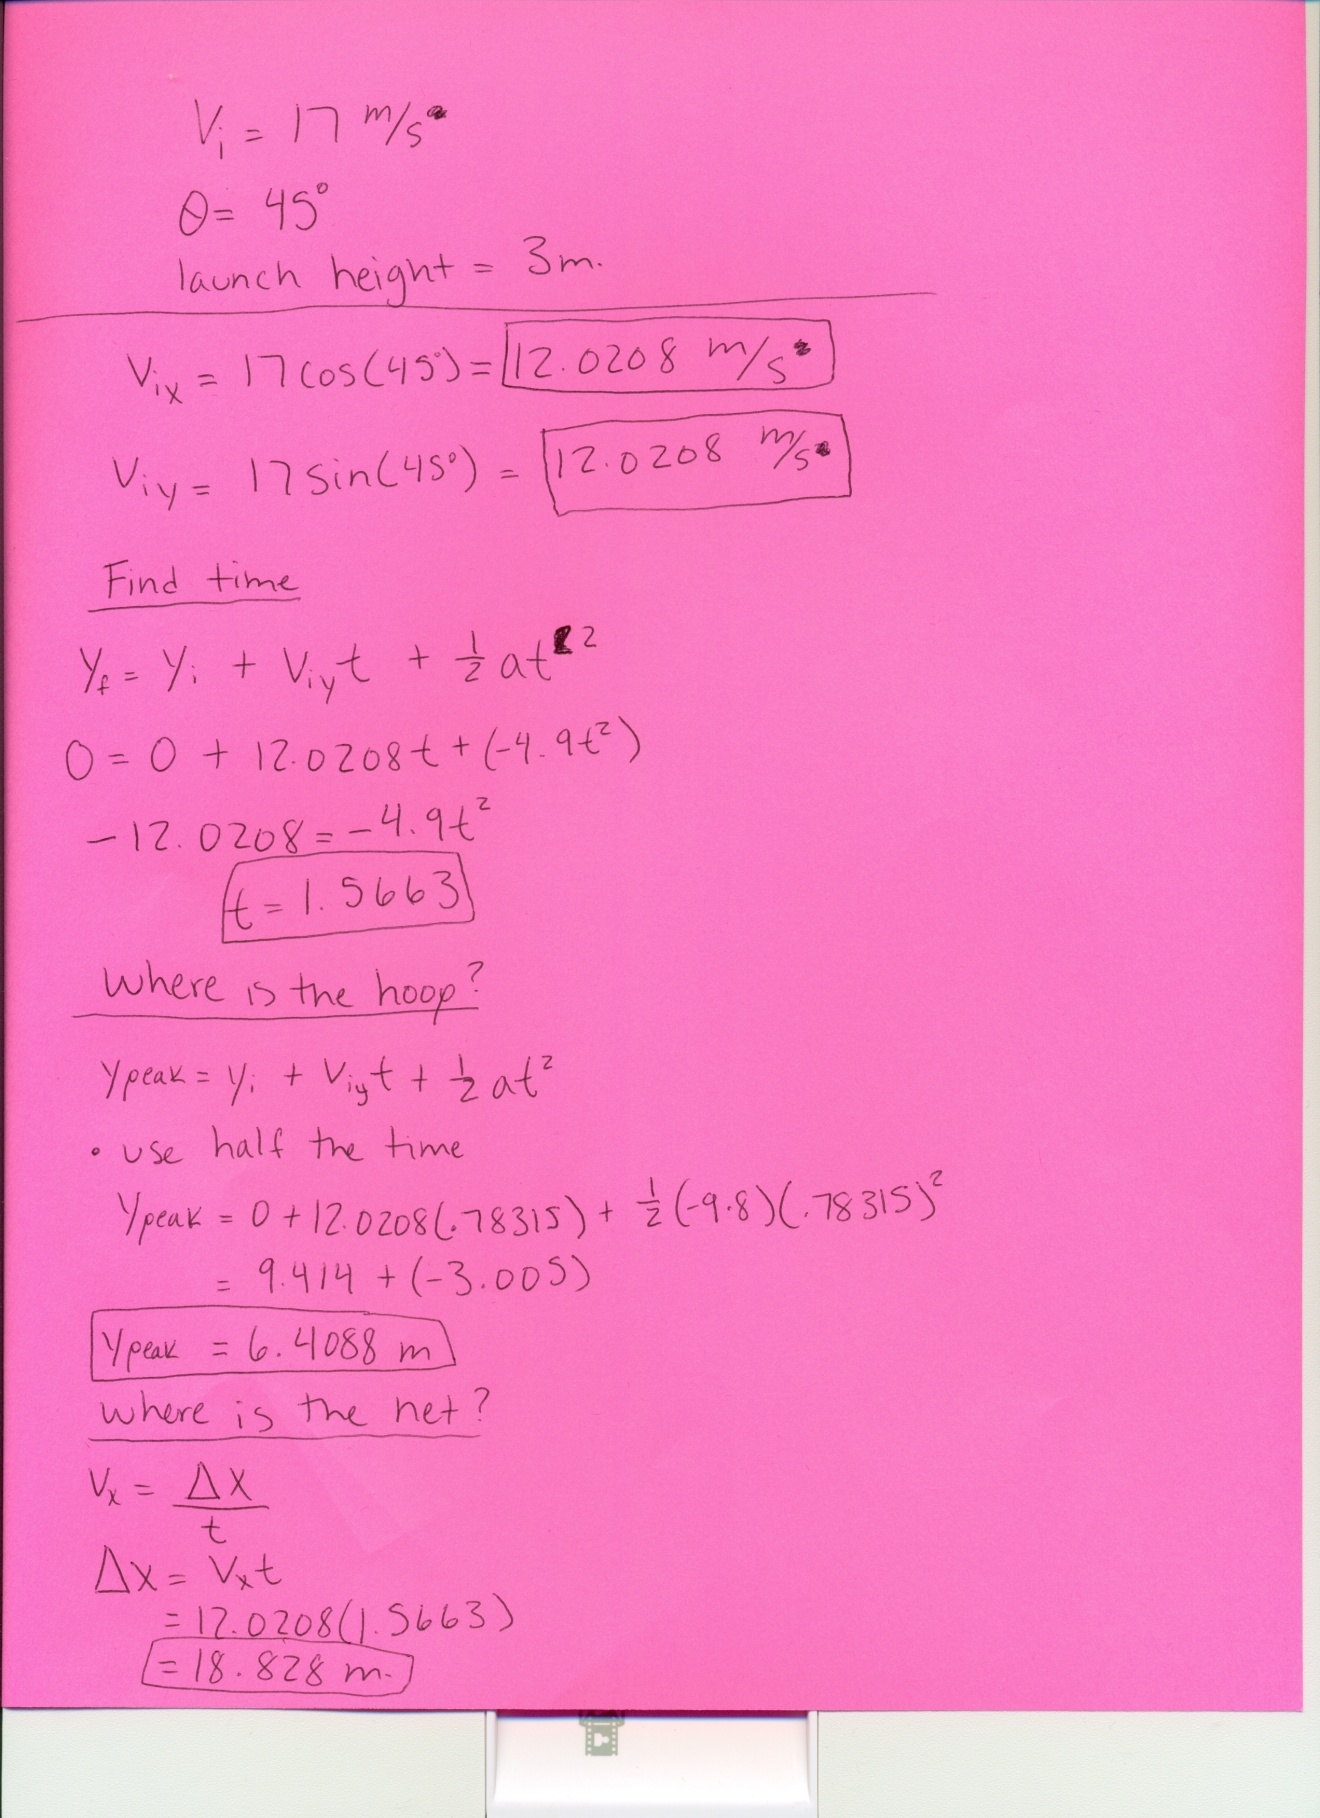 Vi = 17 m/s
θ = 45°
launch height = 3m.
Vix = 17cos(45°) = 12.0208 m/s
Viy = 17sin(45°) = 12.0208 m/s
Find time
Yf = Yi + Viyt + 1/2 at²
0 = 0 + 12.0208t + (-4.9t²)
-12.0208 = -4.9t²
t = 1.5663
Where is the hoop?
Ypeak = yi + Viyt + 1/2 at²
• use half the time
Ypeak = 0 + 12.0208(.78315) + 1/2(-9.8)(.78315)²
= 9.414 + (-3.005)
Ypeak = 6.4088 m
where is the net?
Vx = Δx/t
Δx = Vxt
= 12.0208(1.5663)
= 18.828 m.